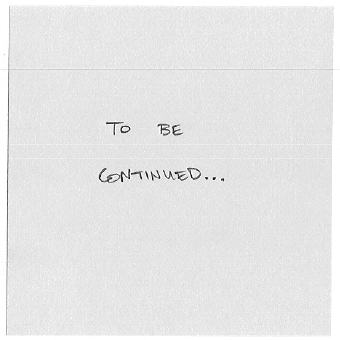 TO BE
CONTINUED...